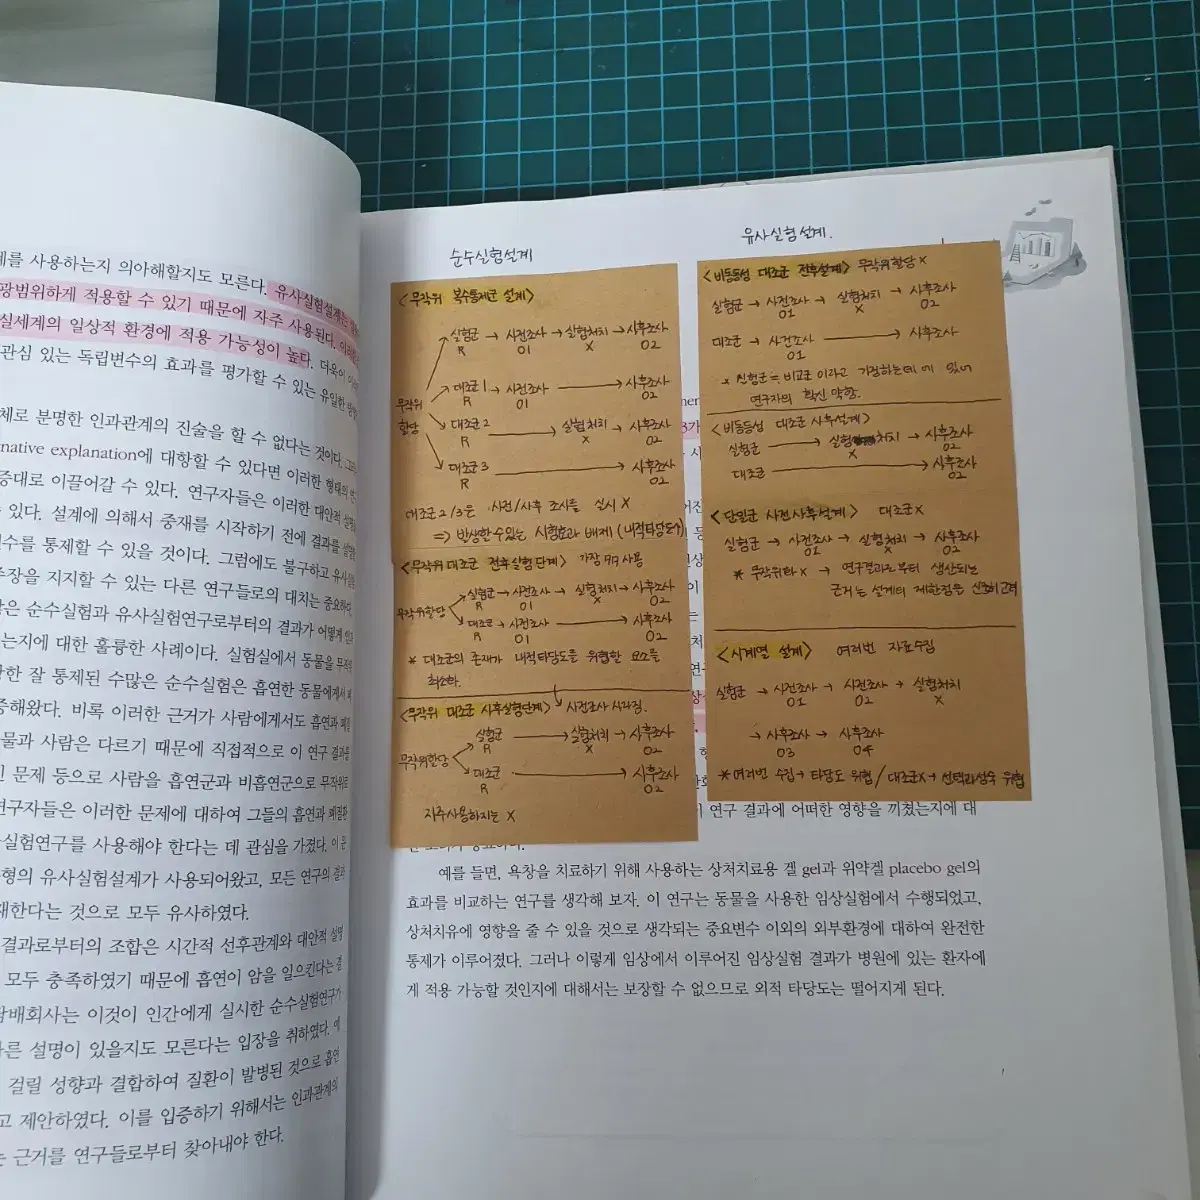 체를 사용하는지 의아해할지도 모른다. 유사실험설계는
광범위하게 적용할 수 있기 때문에 자주 사용된다.
실세계의 일상적 환경에 적용 가능성이 높다. 더욱이
관심 있는 독립변수의 효과를 평가할 수 있는 유일한
체로 분명한 인과관계의 진술을 할 수 없다는 것이다.
native explanation에 대항할 수 있다면 이러한 형태의
증대로 이끌어갈 수 있다. 연구자들은 이러한 대안적 설명
있다. 설계에 의해서 중재를 시작하기 전에 결과를
수를 통제할 수 있을 것이다. 그럼에도 불구하고 유사실험
주장을 지지할 수 있는 다른 연구들로의 대치는 중요하다.
은 순수실험과 유사실험연구로부터의 결과가 어떻게
는지에 대한 훌륭한 사례이다. 실험실에서 동물을
한 잘 통제된 수많은 순수실험은 흡연한 동물에게서
증해왔다. 비록 이러한 근거가 사람에게서도 흡연과
물과 사람은 다르기 때문에 직접적으로 이 연구 결과를
인 문제 등으로 사람을 흡연군과 비흡연군으로
연구자들은 이러한 문제에 대하여 그들의 흡연과 폐질환
실험연구를 사용해야 한다는 데 관심을 가졌다.
형의 유사실험설계가 사용되어왔고, 모든 연구의 결과
재한다는 것으로 모두 유사하였다.
결과로부터의 조합은 시간적 선후관계와 대안적 설명
모두 충족하였기 때문에 흡연이 암을 일으킨다는
담배회사는 이것이 인간에게 실시한 순수실험연구가
다른 설명이 있을지도 모른다는 입장을 취하였다.
걸릴 성향과 결합하여 질환이 발병된 것으로 흡연
고 제안하였다. 이를 입증하기 위해서는 인과관계의
는 근거를 연구들로부터 찾아내야 한다.
순수실험설계
<무작위 복수통제군 설계>
실험군 → 사전조사 → 실험처치 → 사후조사
R O1 X O2
무작위 할당
대조군1 → 사전조사 → 사후조사
R O1 O2
대조군2 → 실험처치 → 사후조사
R X O2
대조군3 → 사후조사
R O2
대조군 2/3은 사전/사후 조사를 실시 X
⇒ 발생할 수 있는 시험효과 배제 (내적타당도↑)
<무작위 대조군 전후실험단계> 가장 자주 사용
무작위할당
실험군 → 사전조사 → 실험처치 → 사후조사
R O1 X O2
대조군 → 사전조사 → 사후조사
R O1 O2
* 대조군의 존재가 내적타당도를 위협할 요소를
최소화.
<무작위 대조군 사후실험단계> 사전조사 사라짐.
무작위할당
실험군 → 실험처치 → 사후조사
R X O2
대조군 → 사후조사
R O2
자주사용하지는 X
유사실험설계.
<비동등성 대조군 전후설계> 무작위할당 X
실험군 → 사전조사 → 실험처치 → 사후조사
O1 X O2
대조군 → 사전조사 → 사후조사
O1 O2
* 실험군 = 비교군 이라고 가정하는데에 있어
연구자의 확신 약함.
<비동등성 대조군 사후설계>
실험군 → 실험처치 → 사후조사
X O2
대조군 → 사후조사
O2
<단일군 사전사후설계> 대조군 X
실험군 → 사전조사 → 실험처치 → 사후조사
O1 X O2
* 무작위화 X → 연구결과로부터 생산되는
근거는 설계의 제한점을 신중히 고려
<시계열 설계> 여러번 자료수집
실험군 → 사전조사 → 사전조사 → 실험처치
O1 O2 X
→ 사후조사 → 사후조사
O3 O4
* 여러번 수집 → 타당도 위협 / 대조군X → 선택과성숙 위협
이 연구 결과에 어떠한 영향을 끼쳤는지에 대
예를 들면, 욕창을 치료하기 위해 사용하는 상처치료용 겔 gel과 위약겔 placebo gel의
효과를 비교하는 연구를 생각해 보자. 이 연구는 동물을 사용한 임상실험에서 수행되었고,
상처치유에 영향을 줄 수 있을 것으로 생각되는 중요변수 이외의 외부환경에 대하여 완전한
통제가 이루어졌다. 그러나 이렇게 임상에서 이루어진 임상실험 결과가 병원에 있는 환자에
게 적용 가능할 것인지에 대해서는 보장할 수 없으므로 외적 타당도는 떨어지게 된다.